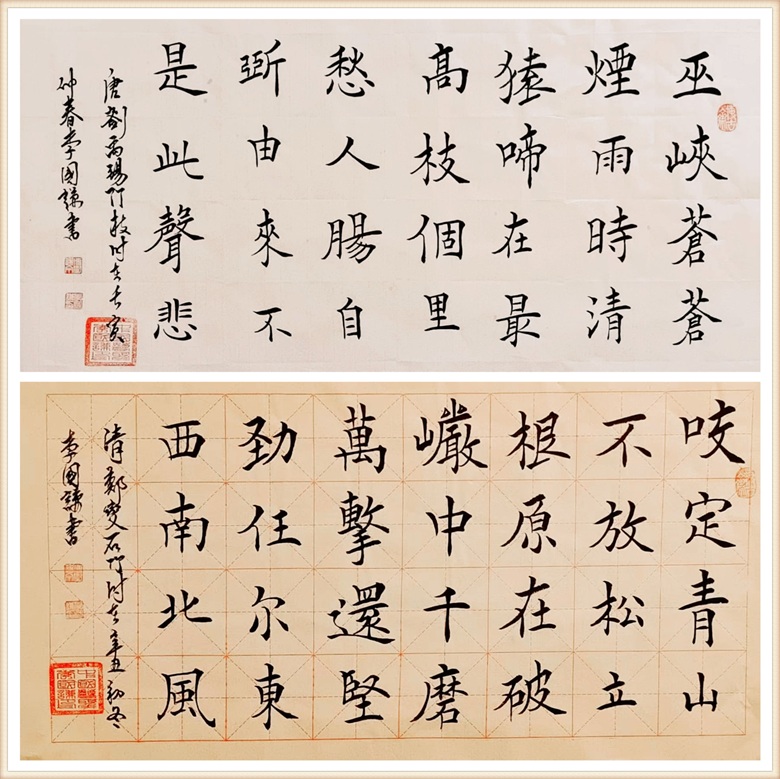 巫峽蒼蒼
煙雨時清
猿啼在最
髙枝個里
愁人腸自
斷由來不
是此聲悲
唐劉禹錫竹枝时在壬寅
仲春李國謙書
咬定青山
不放松立
根原在破
巗中千磨
萬擊還堅
劲任尔東
西南北風
清鄭燮石竹时在辛丑初冬
李國謙書